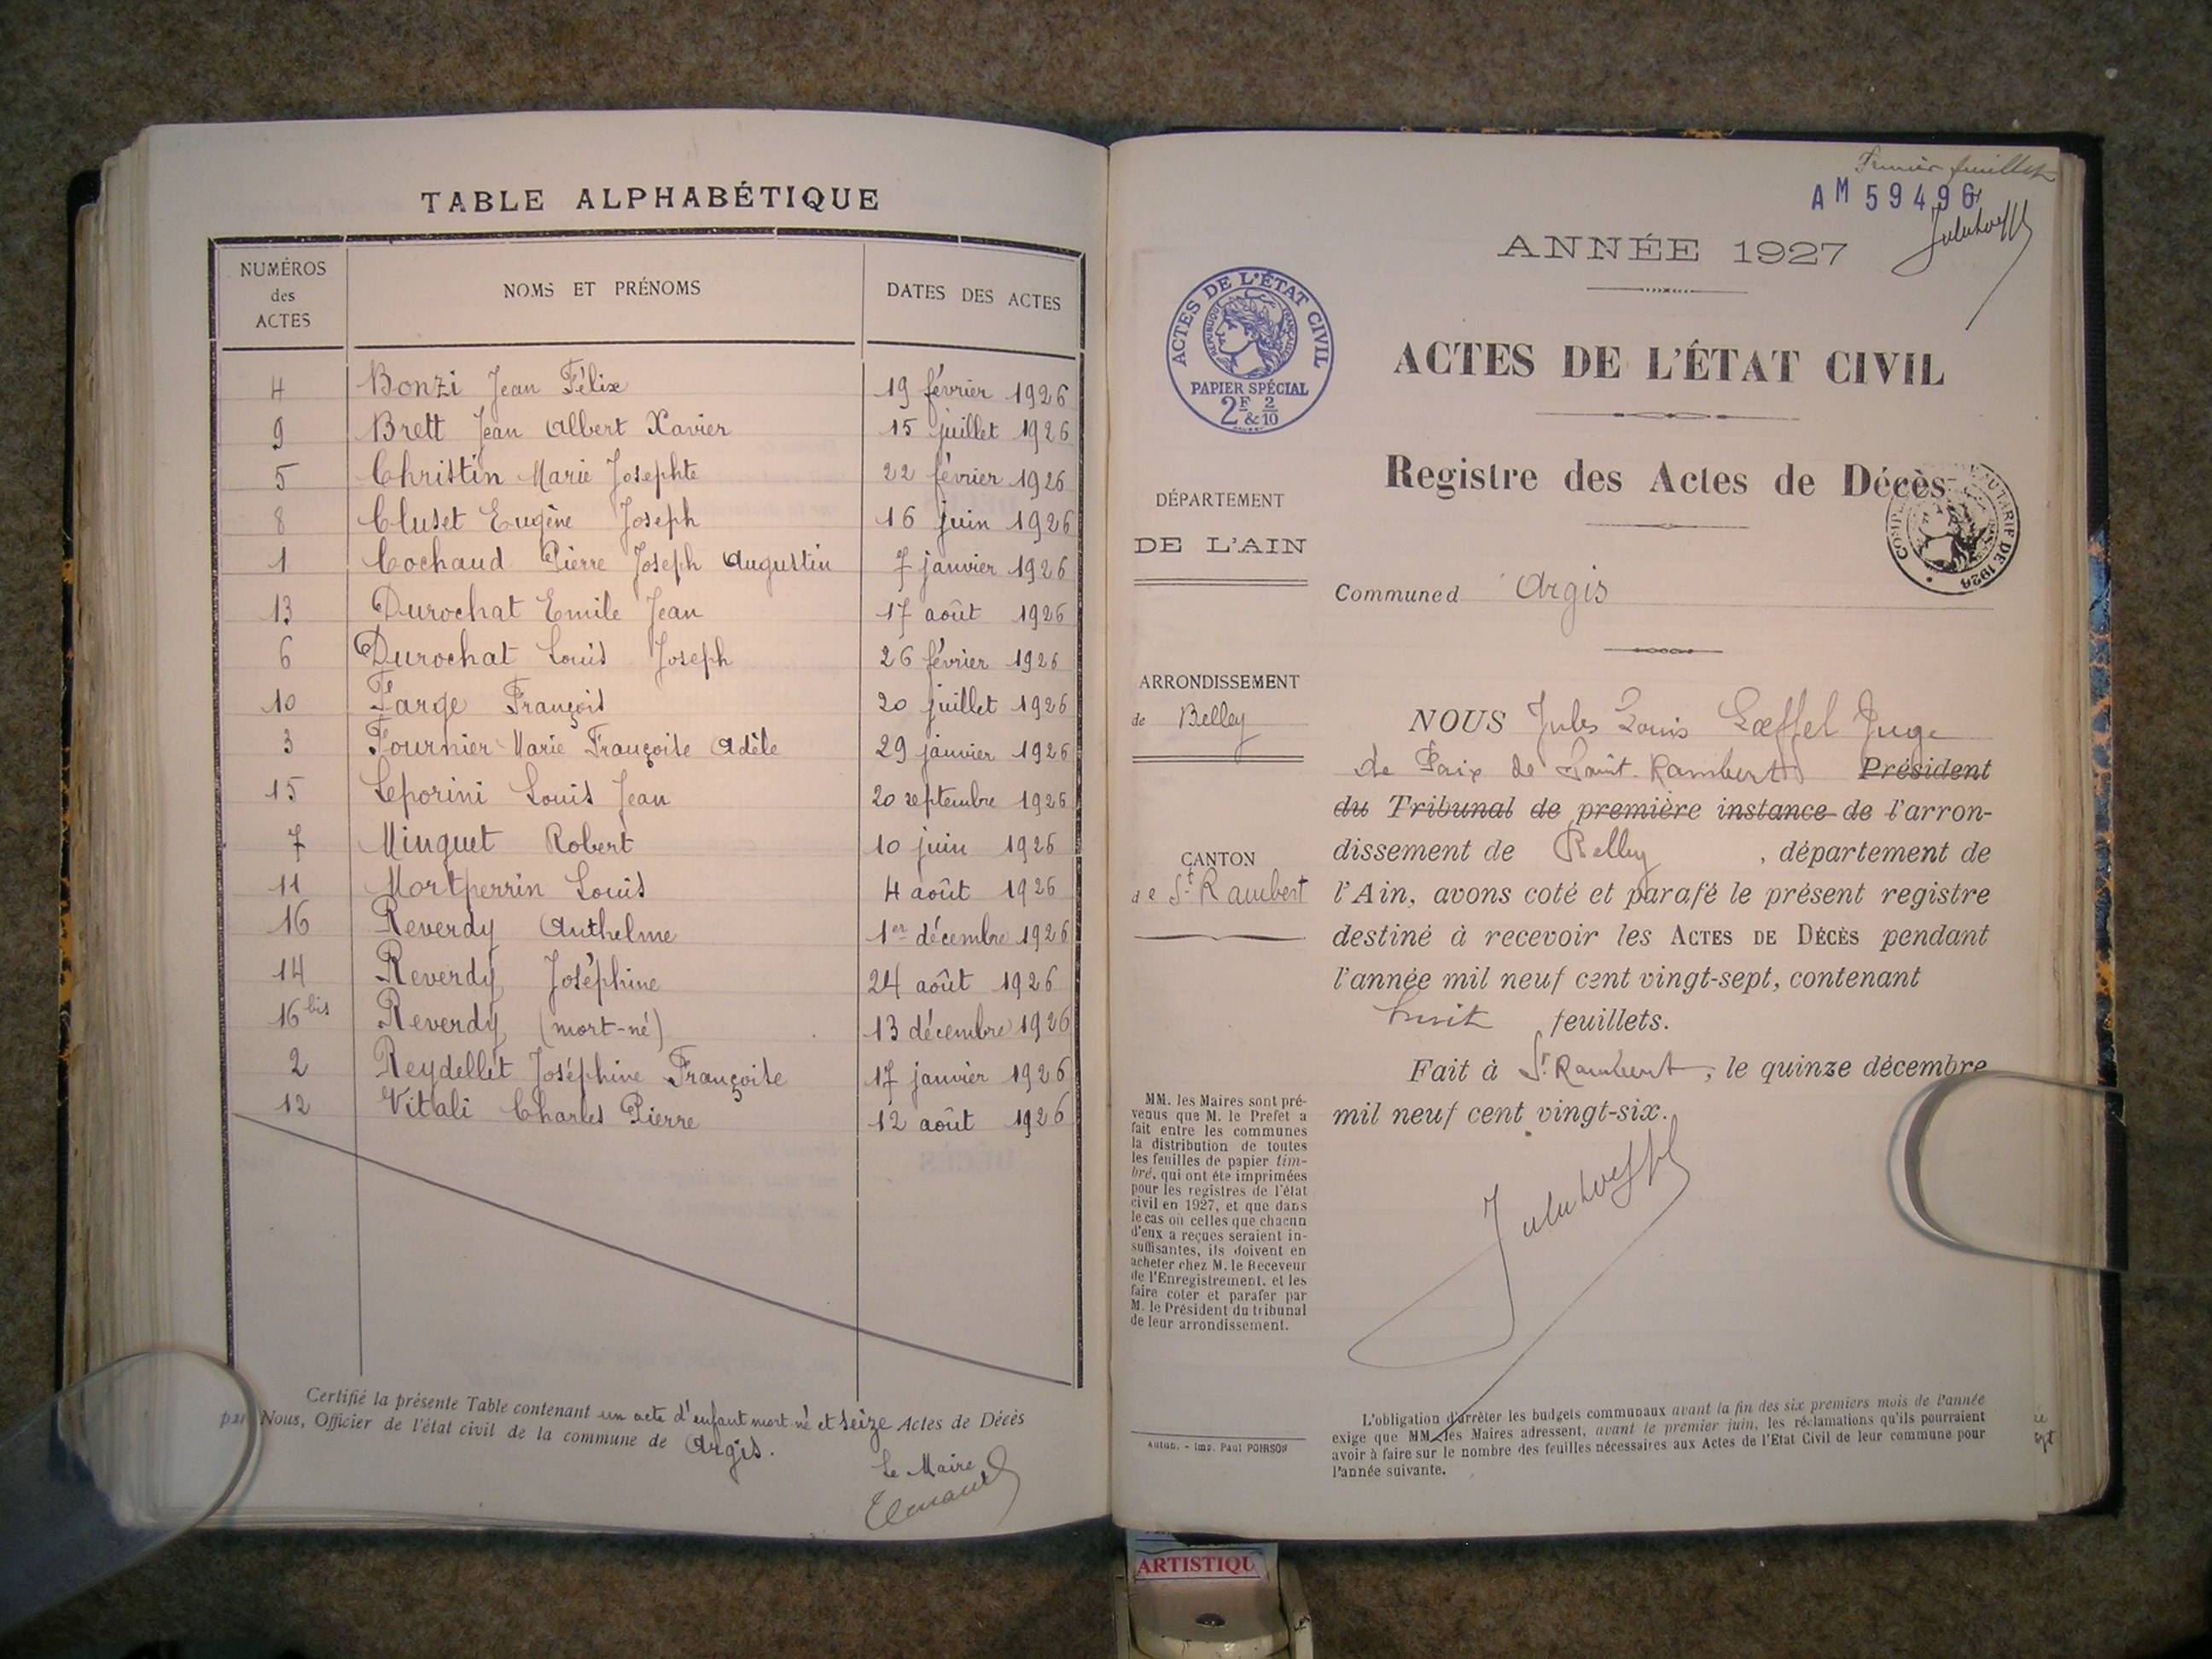 TABLE ALPHABÉTIQUE
NUMÉROS des ACTES NOMS ET PRÉNOMS DATES DES ACTES
4 Bonzi Jean Félix 19 février 1926
9 Brett Jean Albert Xavier 15 juillet 1926
5 Christin Marie Josephte 22 février 1926
8 Cluset Eugène Joseph 16 juin 1926
1 Cochaud Pierre Joseph Augustin 7 janvier 1926
13 Durochat Emile Jean 17 août 1926
6 Durochat Louis Joseph 26 février 1926
10 Farge François 20 juillet 1926
3 Fournier Marie Françoise Adèle 29 janvier 1926
15 Leporini Louis Jean 20 septembre 1926
7 Minguet Robert 10 juin 1926
11 Mortperrin Louis 4 août 1926
16 Reverdy Anthelme 1er décembre 1926
14 Reverdy Joséphine 24 août 1926
16 bis Reverdy (mort-né) 13 décembre 1926
2 Reydellet Joséphine Françoise 17 janvier 1926
12 Vitali Charles Pierre 12 août 1926
Certifié la présente Table contenant un acte d'enfant mort-né et seize Actes de Décès
par Nous, Officier de l'état civil de la commune de Argis.
Le Maire
Premier feuillet
AM 59496
ANNÉE 1927
ACTES DE L'ÉTAT CIVIL
RÉPUBLIQUE FRANÇAISE
PAPIER SPÉCIAL
2F & 2/10
ACTES DE L'ÉTAT CIVIL
Registre des Actes de Décès
TARIF DE 1924
DÉPARTEMENT
DE L'AIN
Commune d'Argis
ARRONDISSEMENT
de Belley
CANTON
de St Rambert
NOUS Jules Louis Lœffel Juge
de Paix de Saint-Rambert Président
du Tribunal de première instance de l'arron-
dissement de Belley, département de
l'Ain, avons coté et parafé le présent registre
destiné à recevoir les ACTES DE DÉCÈS pendant
l'année mil neuf cent vingt-sept, contenant
huit feuillets.
Fait à St Rambert, le quinze décembre
mil neuf cent vingt-six.
MM. les Maires sont pré-
venus que M. le Préfet a
fait entre les communes
la distribution de toutes
les feuilles de papier tim-
bré, qui ont été imprimées
pour les registres de l'état
civil en 1927, et que dans
le cas où celles que chacun
d'eux a reçues seraient in-
suffisantes, ils doivent en
acheter chez M. le Receveur
de l'Enregistrement, et les
faire coter et parafer par
M. le Président du tribunal
de leur arrondissement.
Autun. - Imp. Paul POIRSON
L'obligation d'arrêter les budgets communaux avant la fin des six premiers mois de l'année
exige que MM. les Maires adressent, avant le premier juin, les réclamations qu'ils pourraient
avoir à faire sur le nombre des feuilles nécessaires aux Actes de l'Etat Civil de leur commune pour
l'année suivante.
ARTISTIQU